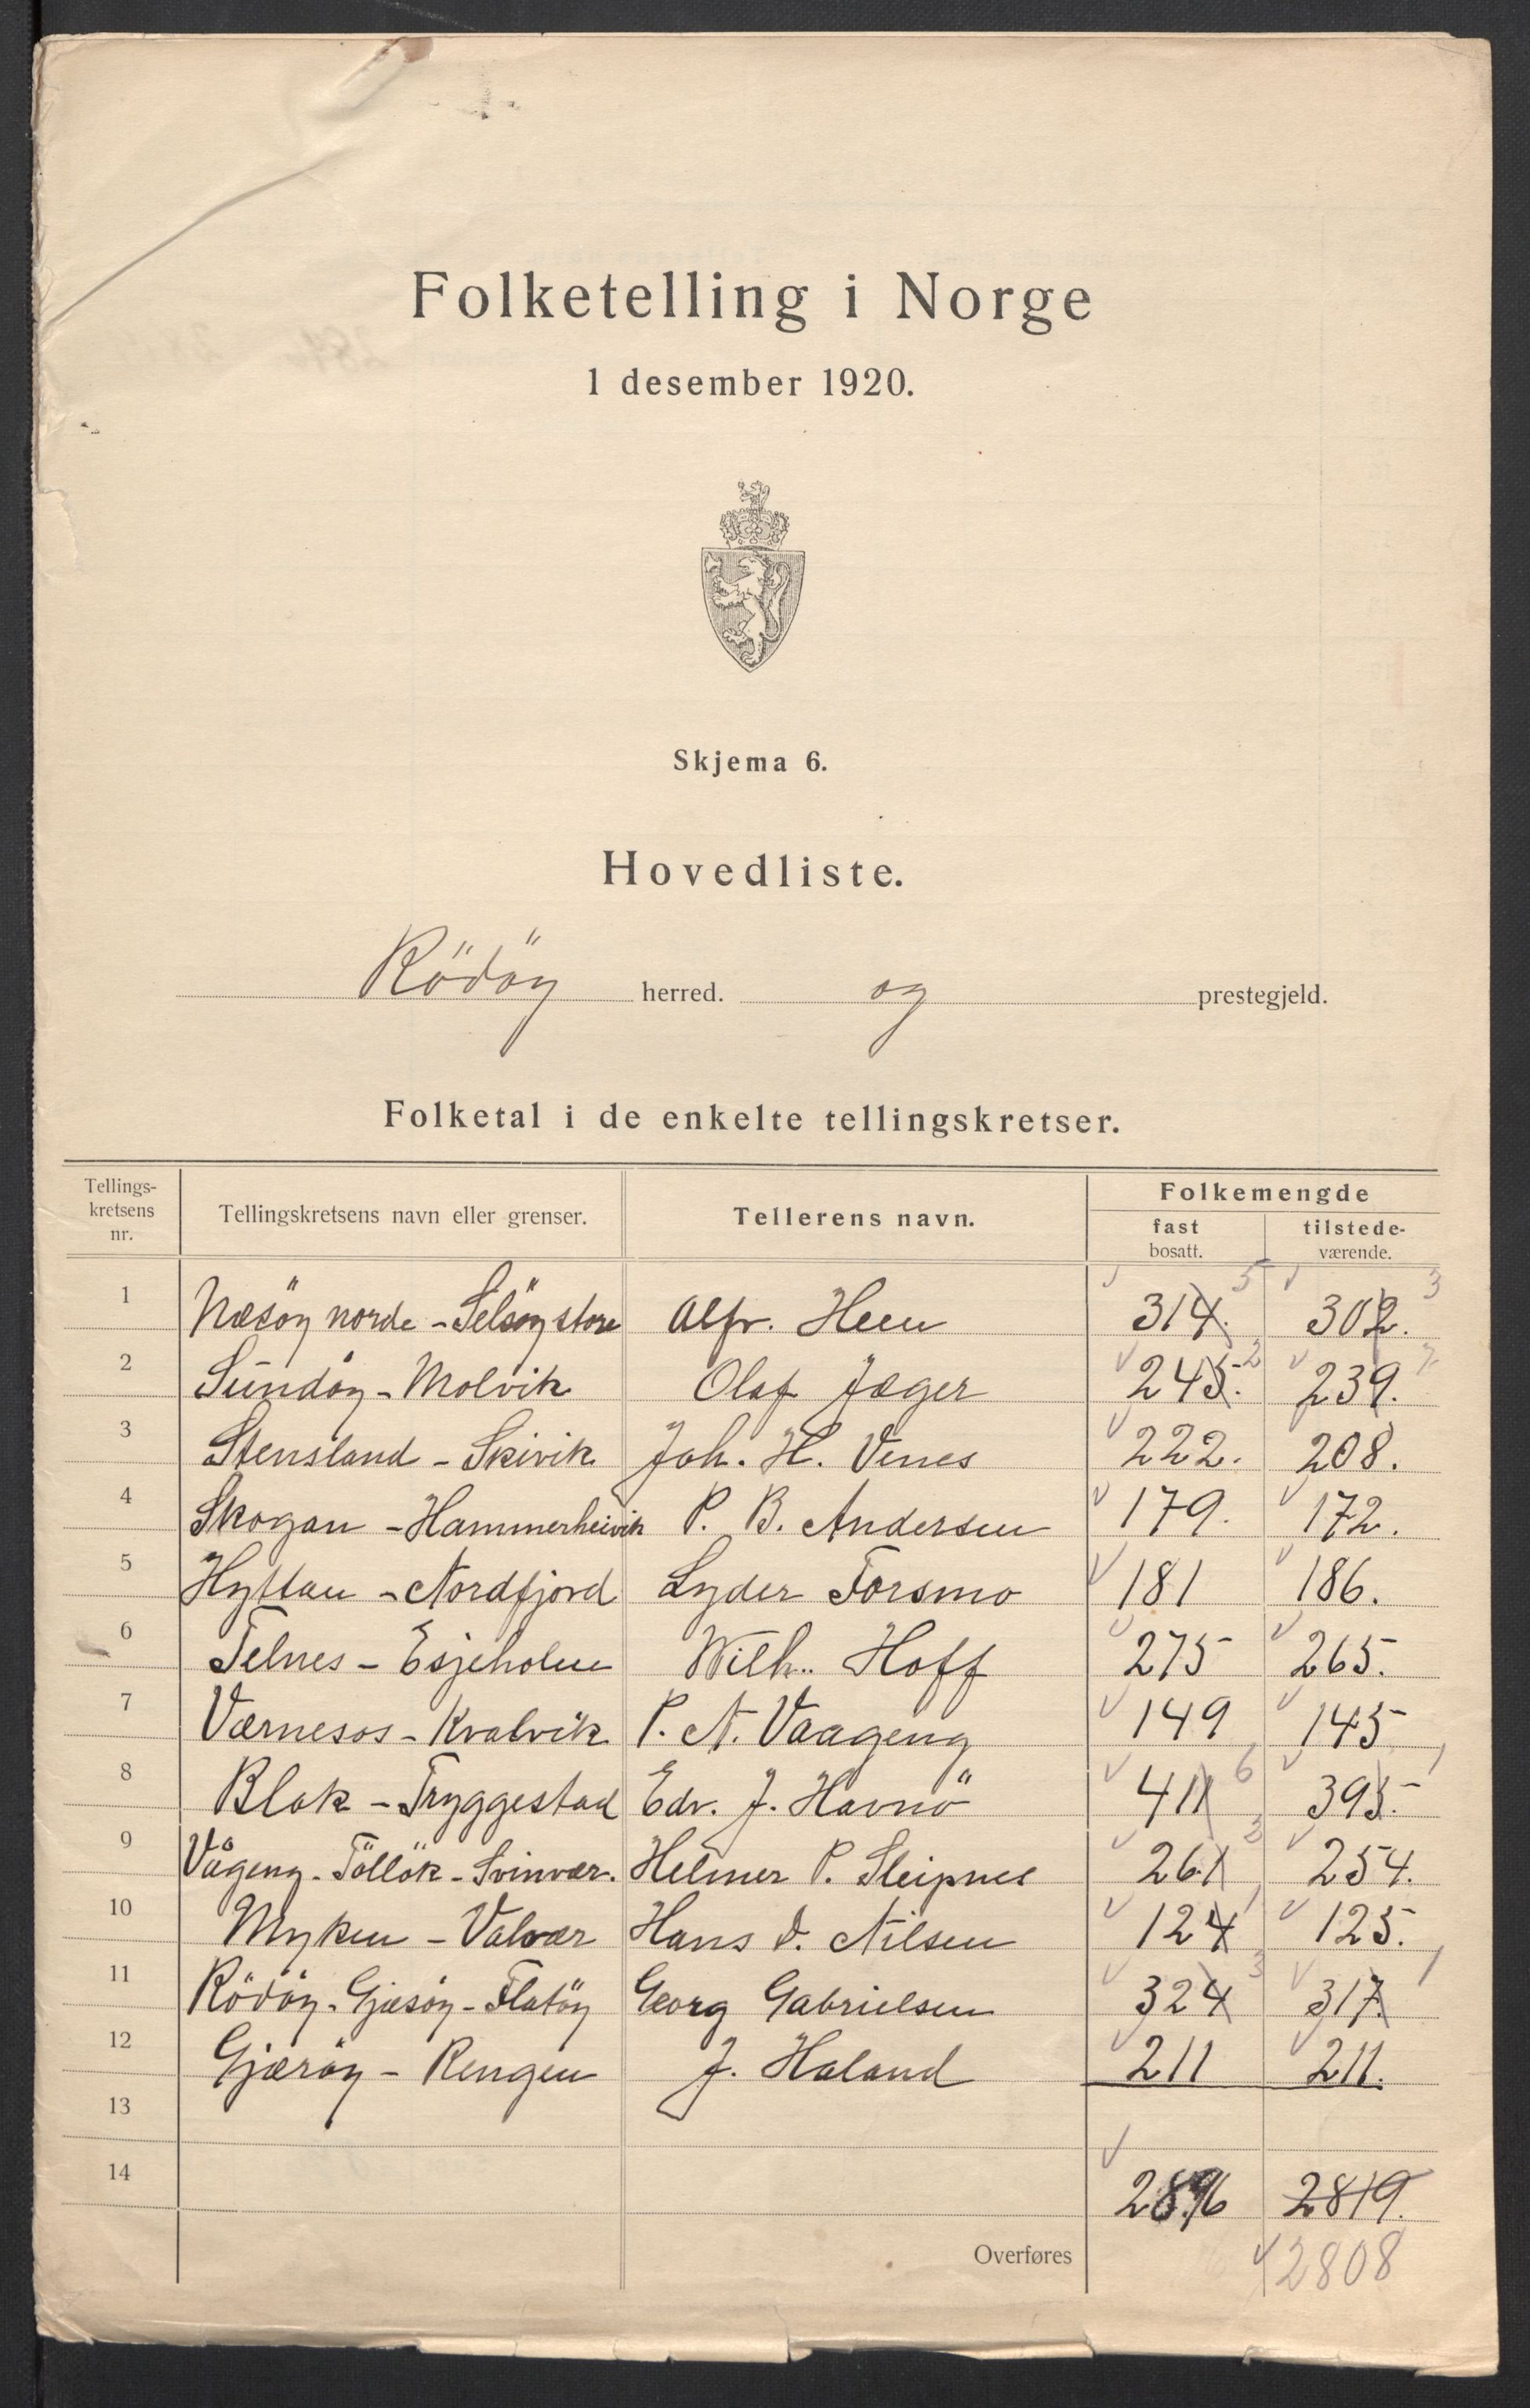 Folketelling i Norge
1 desember 1920.
Skjema 6.
Hovedliste.
Rödöy herred. og prestegjeld.
Folketal i de enkelte tellingskretser.
Tellings-kretsens nr. Tellingskretsens navn eller grenser. Tellerens navn. Folkemengde fast bosatt. tilstede-værende.
1 Næsöy norde - Selsöy store Alfr. Heen 314. 5 302. 3
2 Sundöy - Molvik Olaf Jæger 245. 2 239. 7
3 Stensland - Skivik Joh. H. Venes 222. 208.
4 Skogan - Hammerheivik P. B. Andersen 179. 172.
5 Hyttan - Nordfjord Lyder Forsmo 181 186.
6 Telnes - Esjeholm Wilh. Hoff 275 265.
7 Værnesos - Kvalvik P. A. Vaageng 149 145
8 Blok - Tryggestad Edv. J. Havnö 411 6 395. 1
9 Vågeng - Töllök - Svinvær. Helmer P. Sleipnes 261 3 254.
10 Myken - Valvær Hans D. Nilsen 124 1 125.
11 Rödöy - Gjæsöy - Flatöy Georg Gabrielsen 324 3 317. 1
12 Gjæröy - Rengen J. Haland 211 211.
13
14 2896 2819.
Overføres 2808